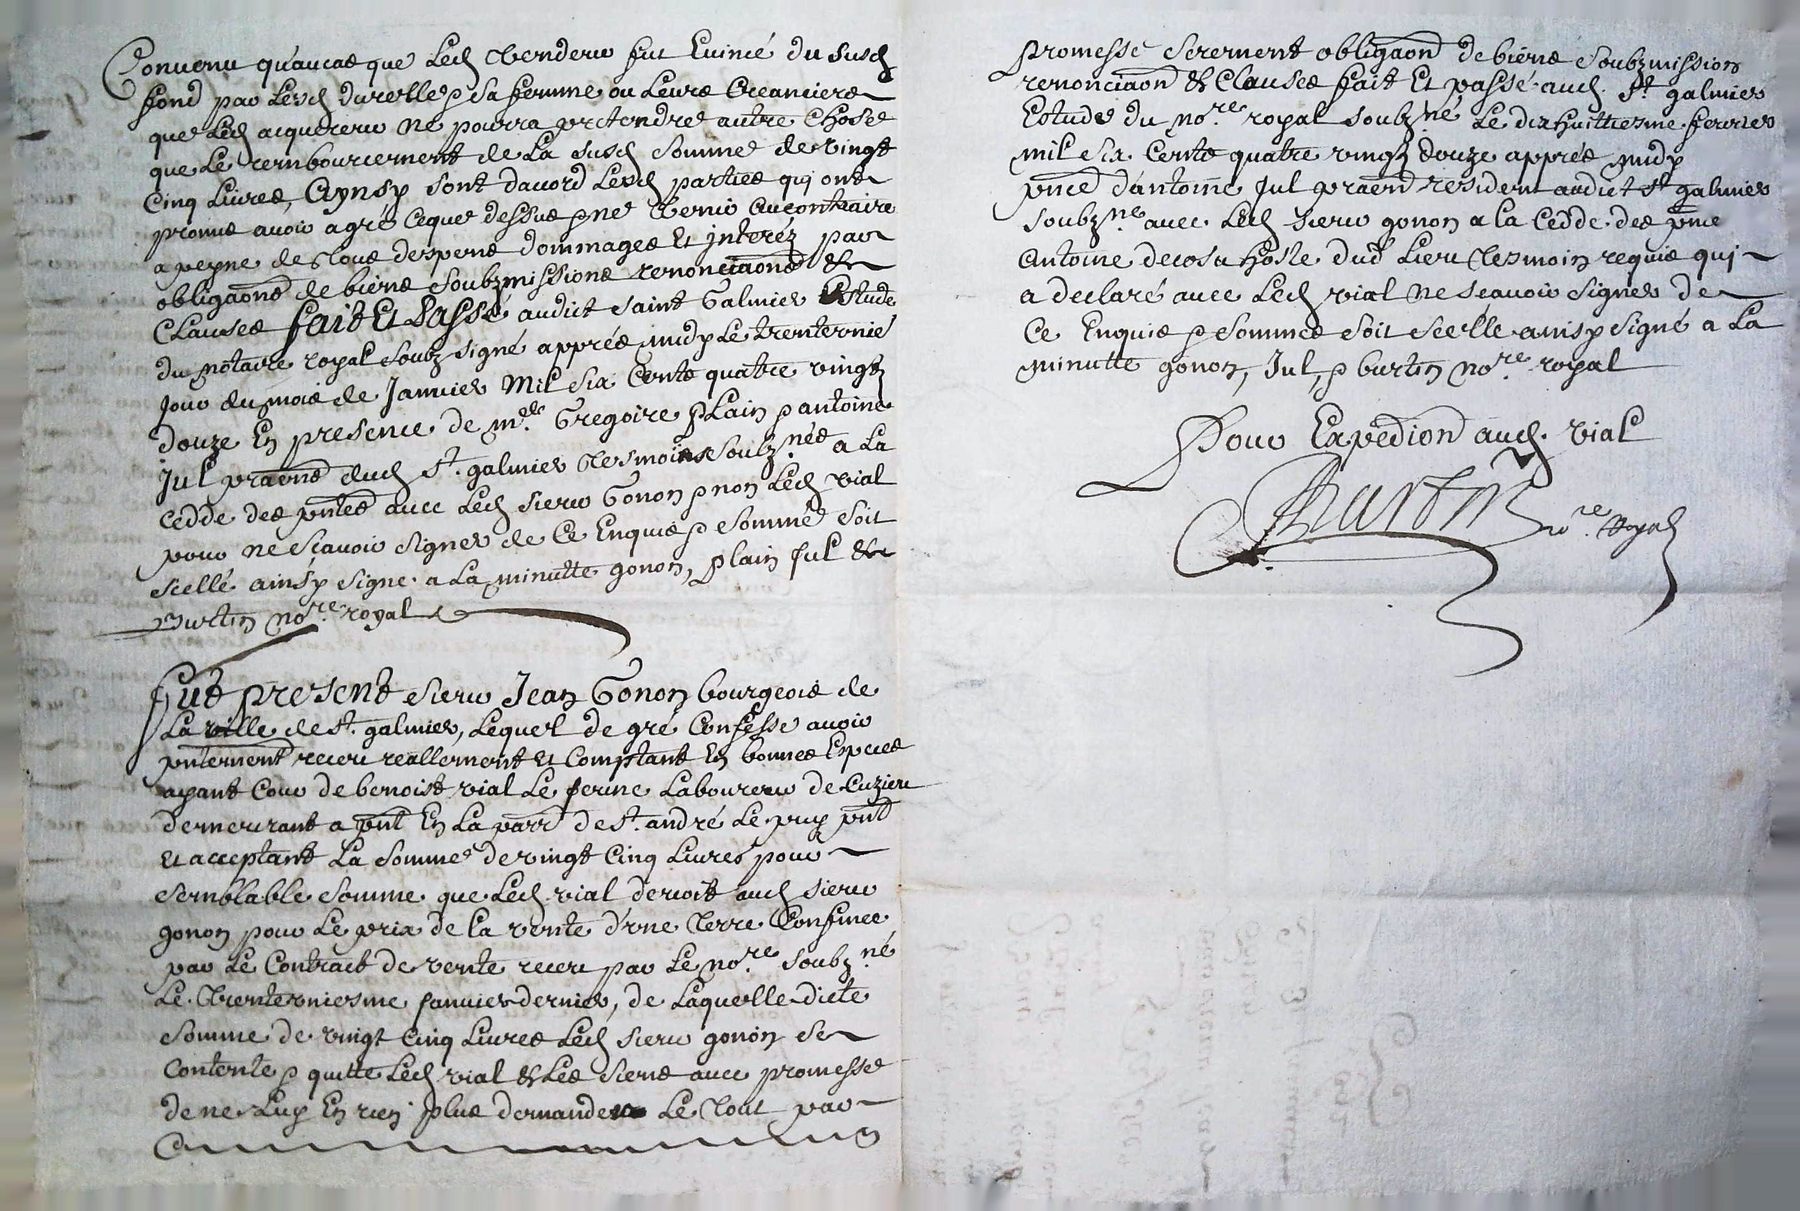 Convenu qu'aucas que Led. Vendeur fut Evincé du susd.
fond par Lesd. durelle & sa femme ou Leurs Creanciers
que Led. acquereur ne pourra pretendre autre Chose
que Le rembourcement de La susd. somme de vingt
Cinq Livres, Aynsy sont dacord Lesd. parties qui ont
promis avoir a gré ceque dessus & ne Venir au contraire
a peyne de tous despens dommages Et interez par
obligaons de biens soubzmissions renonciaons &
Clauses fait Et Passé audict saint Galmier Estude
du notaire royal soubzsigné apprés midy Le trenteunié
jour du mois de Janvier Mil six Cents quatre vingt
douze En presence de Mr. Gregoire plain & antoine
Jul praens dud. St. galmier tesmoins soubz.nés a La
Cedde des pntes avec Led. sieur Gonon & non Led. vial
pour ne scavoir signer de Ce Enquis & sommé soit
scellé ainsy signé a La minutte gonon, plain Jul &
Burtin no.re royal
Fut present sieur Jean Gonon bourgeois de
La ville de St. galmier, Lequel de gré Confesse avoir
pntement receu reallement et Comptant En bonnes Especes
ayant Cour de benoist vial Le jeune Laboureur de Cuzieu
demeurant a pnt En La parr. de St. andré Le puy pnt
et acceptant La somme de vingt Cinq Livres pour
semblable somme que Led. vial devoit aud. sieur
gonon pour Le prix de la vente d'une Terre Confinee
par Le Contract de vente receu par Le no.re soubz.né
Le Trenteuniesme janvier dernier, de Laquelle dicte
somme de vingt Cinq Livres Led. sieur gonon se
Contente & quitte Led. vial & Les siens avec promesse
de ne Luy En rien plus demander Le Tout par
promesse serement obligaon de biens soubzmission
renonciaon & Clauses fait Et passé aud. St. galmier
Estude du no.re royal soubz.né Le dixhuitiesme fevrier
mil six Cents quatre vingt douze apprés midy
pnce d'antoine Jul praen resident audict St galmier
soubz.né avec Led. sieur gonon a la Cedde des pnte
Antoine decosu hoste dud. Lieu tesmoin requis qui
a declaré avec Led. vial ne scavoir signer de
Ce Enquis & sommés soit scellé ainsy signé a La
minutte gonon, Jul, & burtin no.re royal
Pour Expedion aud. vial
Burtin
no.re Royal